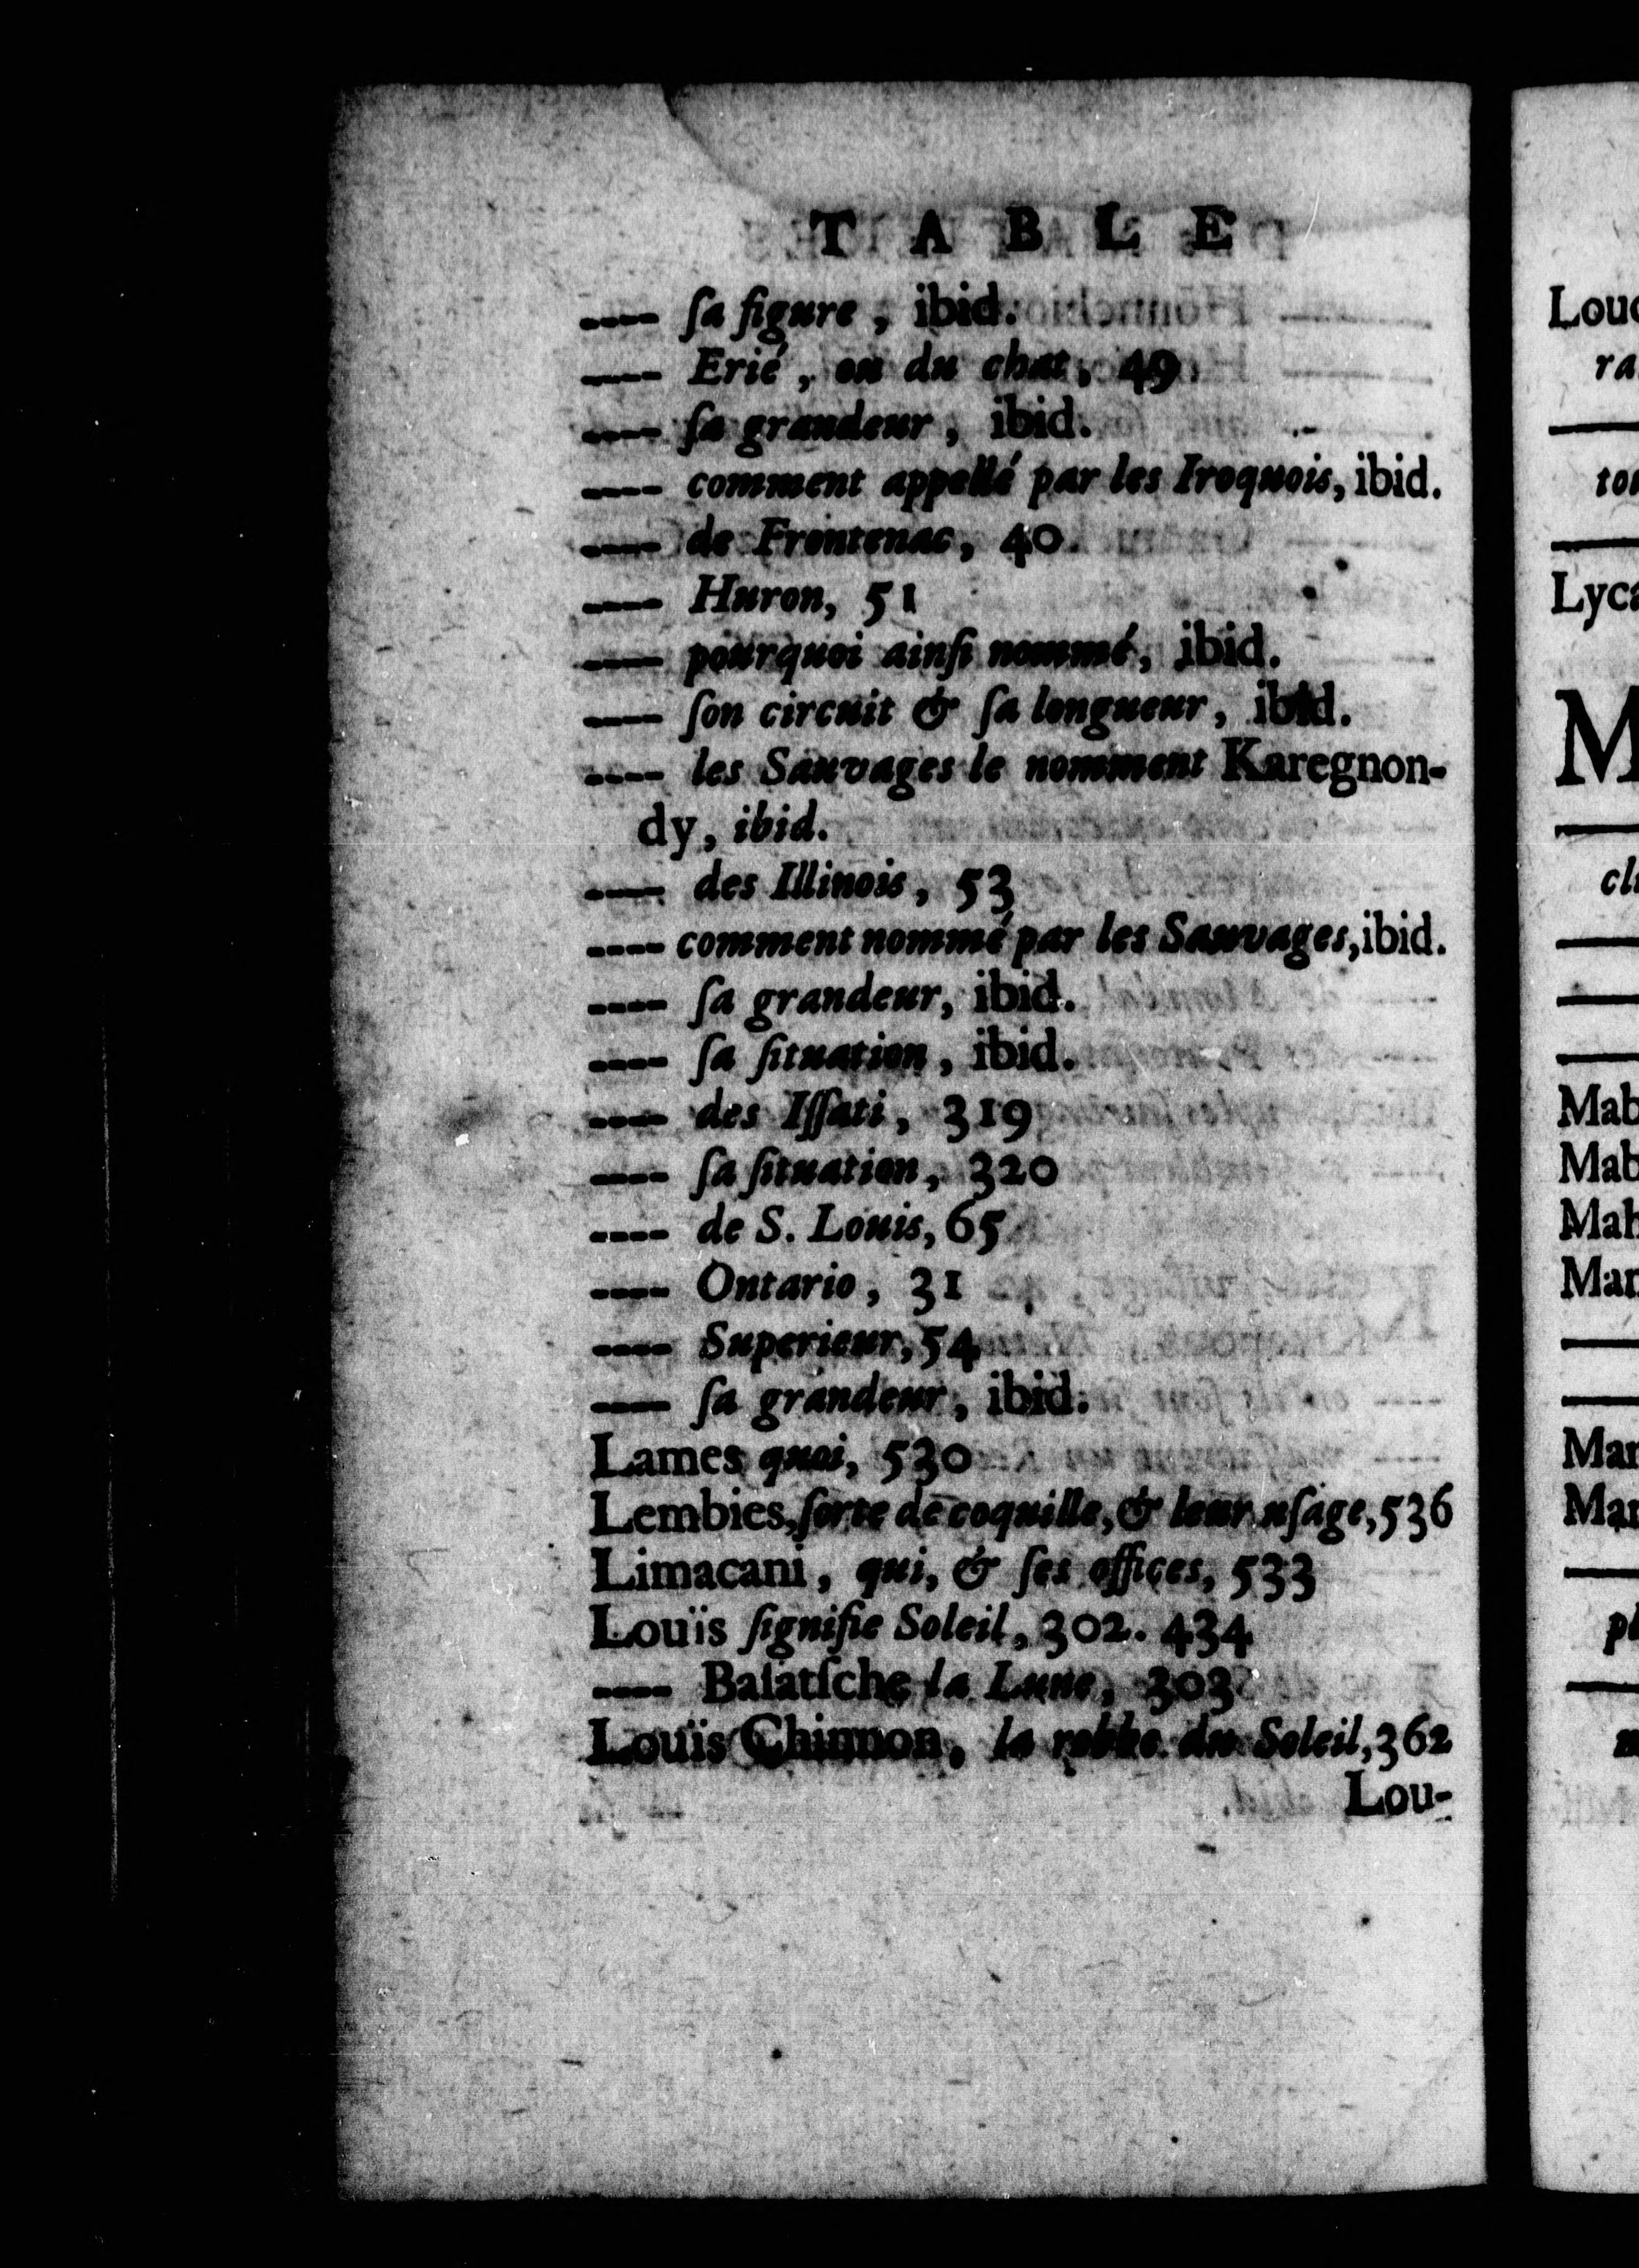 TABLE
---- ſa figure, ibid.
---- Erié, ou du chat, 49
---- ſa grandeur, ibid.
---- comment appellé par les Iroquois, ibid.
---- de Frontenac, 40
---- Huron, 51
---- pourquoi ainſi nommé, ibid.
---- ſon circuit & ſa longueur, ibid.
---- les Sauvages le nomment Karegnon-
dy, ibid.
---- des Illinois, 53
---- comment nommé par les Sauvages, ibid.
---- ſa grandeur, ibid.
---- ſa ſituation, ibid.
---- des Iſſati, 319
---- ſa ſituation, 320
---- de S. Louis, 65
---- Ontario, 31
---- Superieur, 54
---- ſa grandeur, ibid.
Lames quoi, 530
Lembies, ſorte de coquille, & leur uſage, 536
Limacani, qui, & ſes offices, 533
Louïs ſignifie Soleil, 302. 434
---- Baſatſche la Lune, 303
Louïs Chinnon, la robbe du Soleil, 362
Lou-